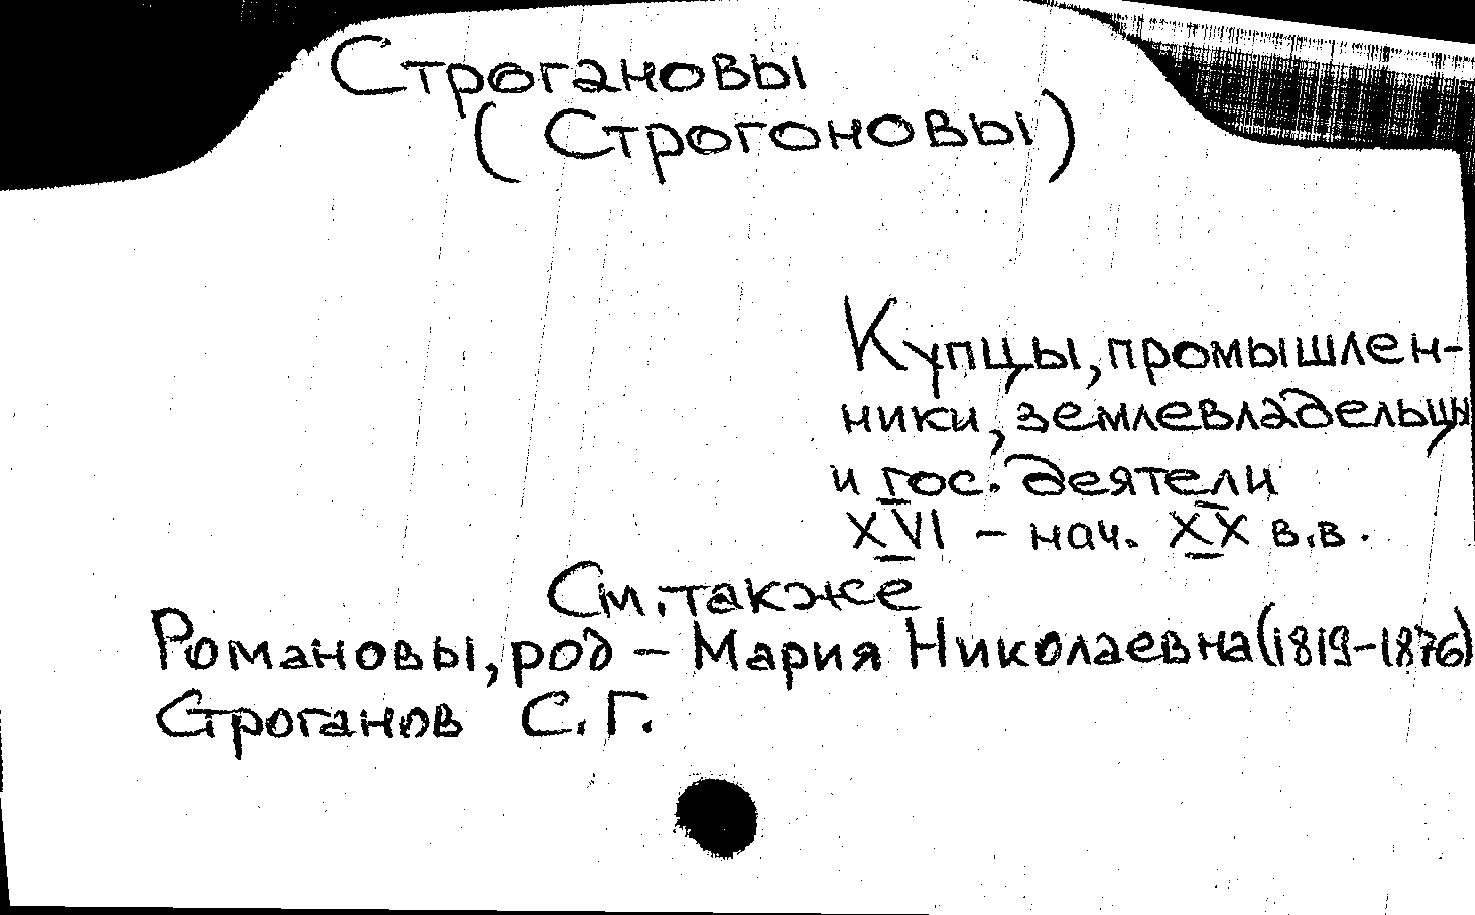 Строгановы
(Строгоновы)
Купцы, промышлен-
ники, землевладельцы
и гос. деятели
XVI – нач. XX в.в.
См. также
Романовы, род – Мария Николаевна (1819–1876)
Строганов С.Г.